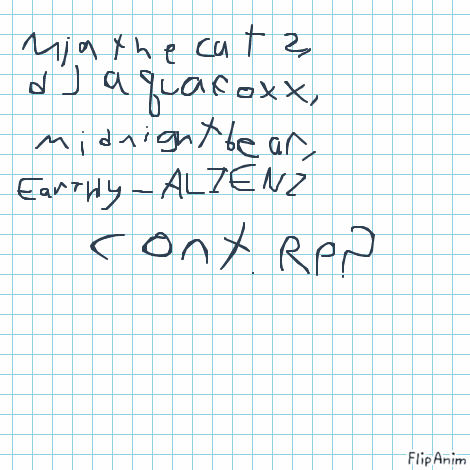 Miathecat2,
dJaquafoxx,
midnightbear,
Earthy-ALIENZ
cont. Rp?
FlipAnim